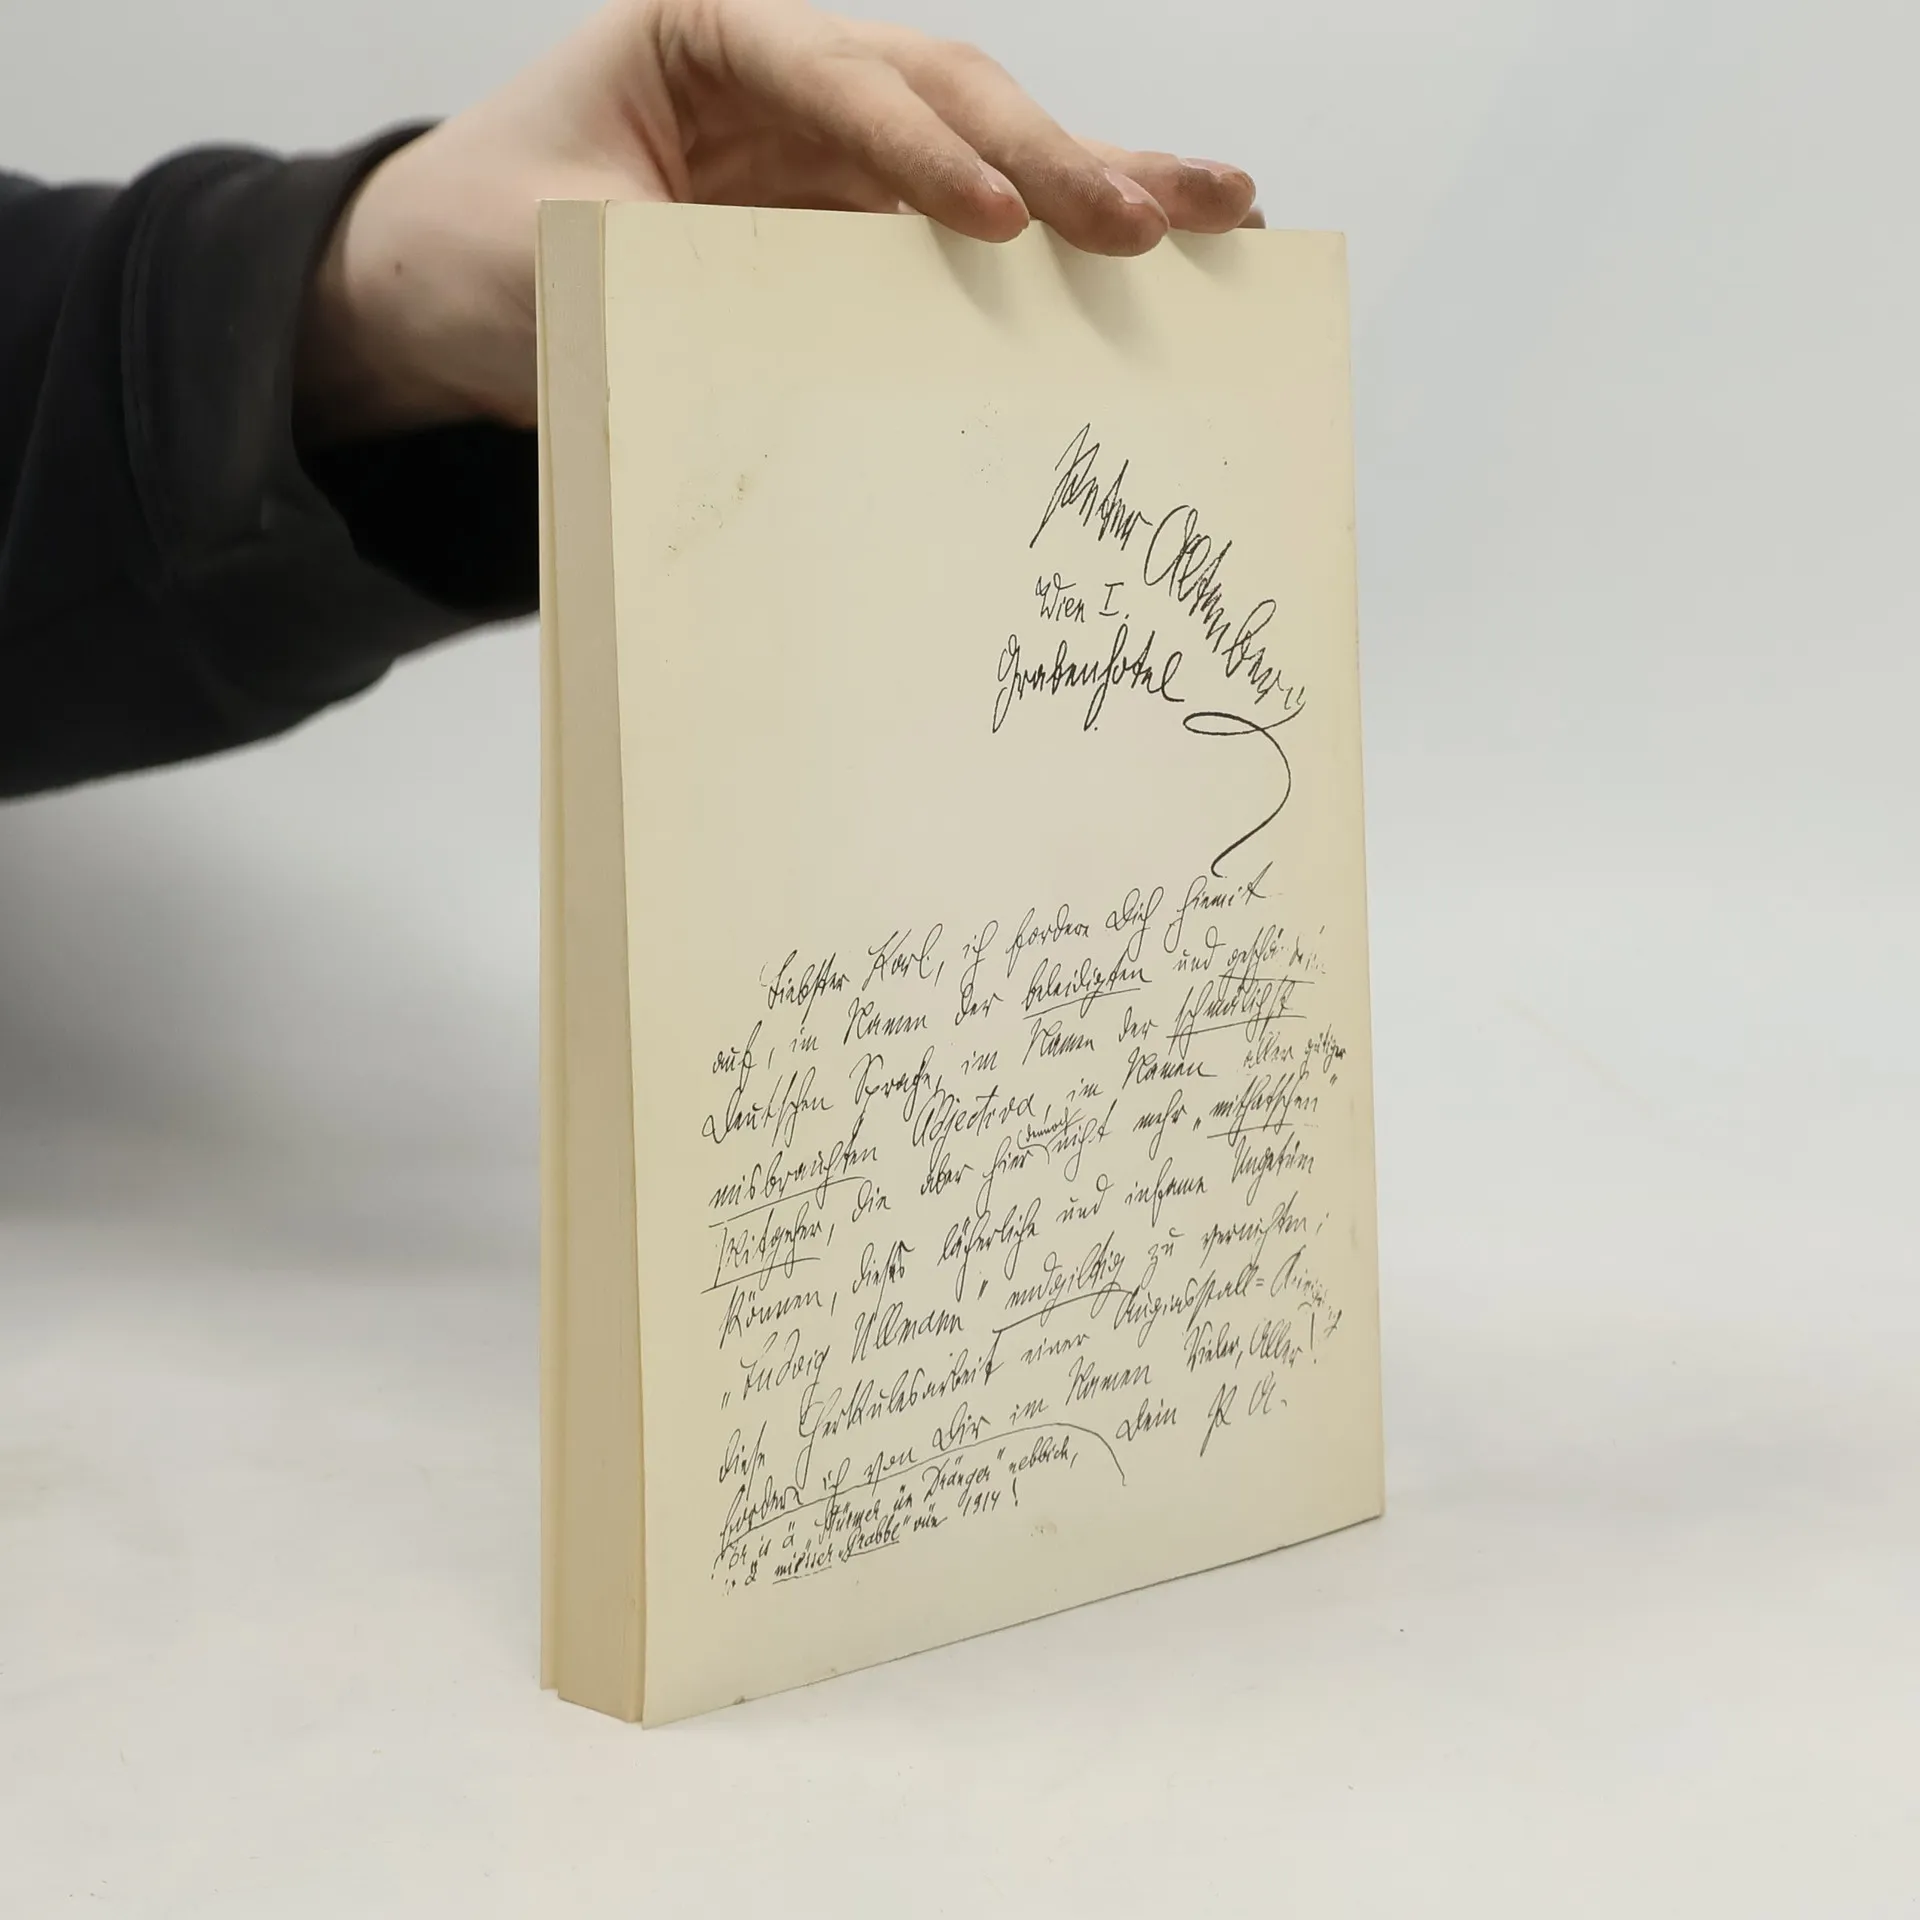 Peter Altenberg
Wien I.
Grabenhotel
Liebster Karl, ich fordere Dich hiemit
auf, im Namen der beleidigten und
Deutschen Sprache, im Namen der schmählichst
misbrauchten Adjectiva, im Namen aller gütiger
Mitgeher, die aber hier dennoch nicht mehr „mithatschen“
können, dieses lächerliche und infame Ungetüm
„Ludwig Ullmann“ endgiltig zu vernichten;
diese Herkulesarbeit einer Augiasstall=
fordere ich von Dir im Namen Vieler, Aller!
Dein P A.
Er is ä „Stürmer ün Dränger“ nebbich,
is ä mieser „Grabbe“ vün 1914!